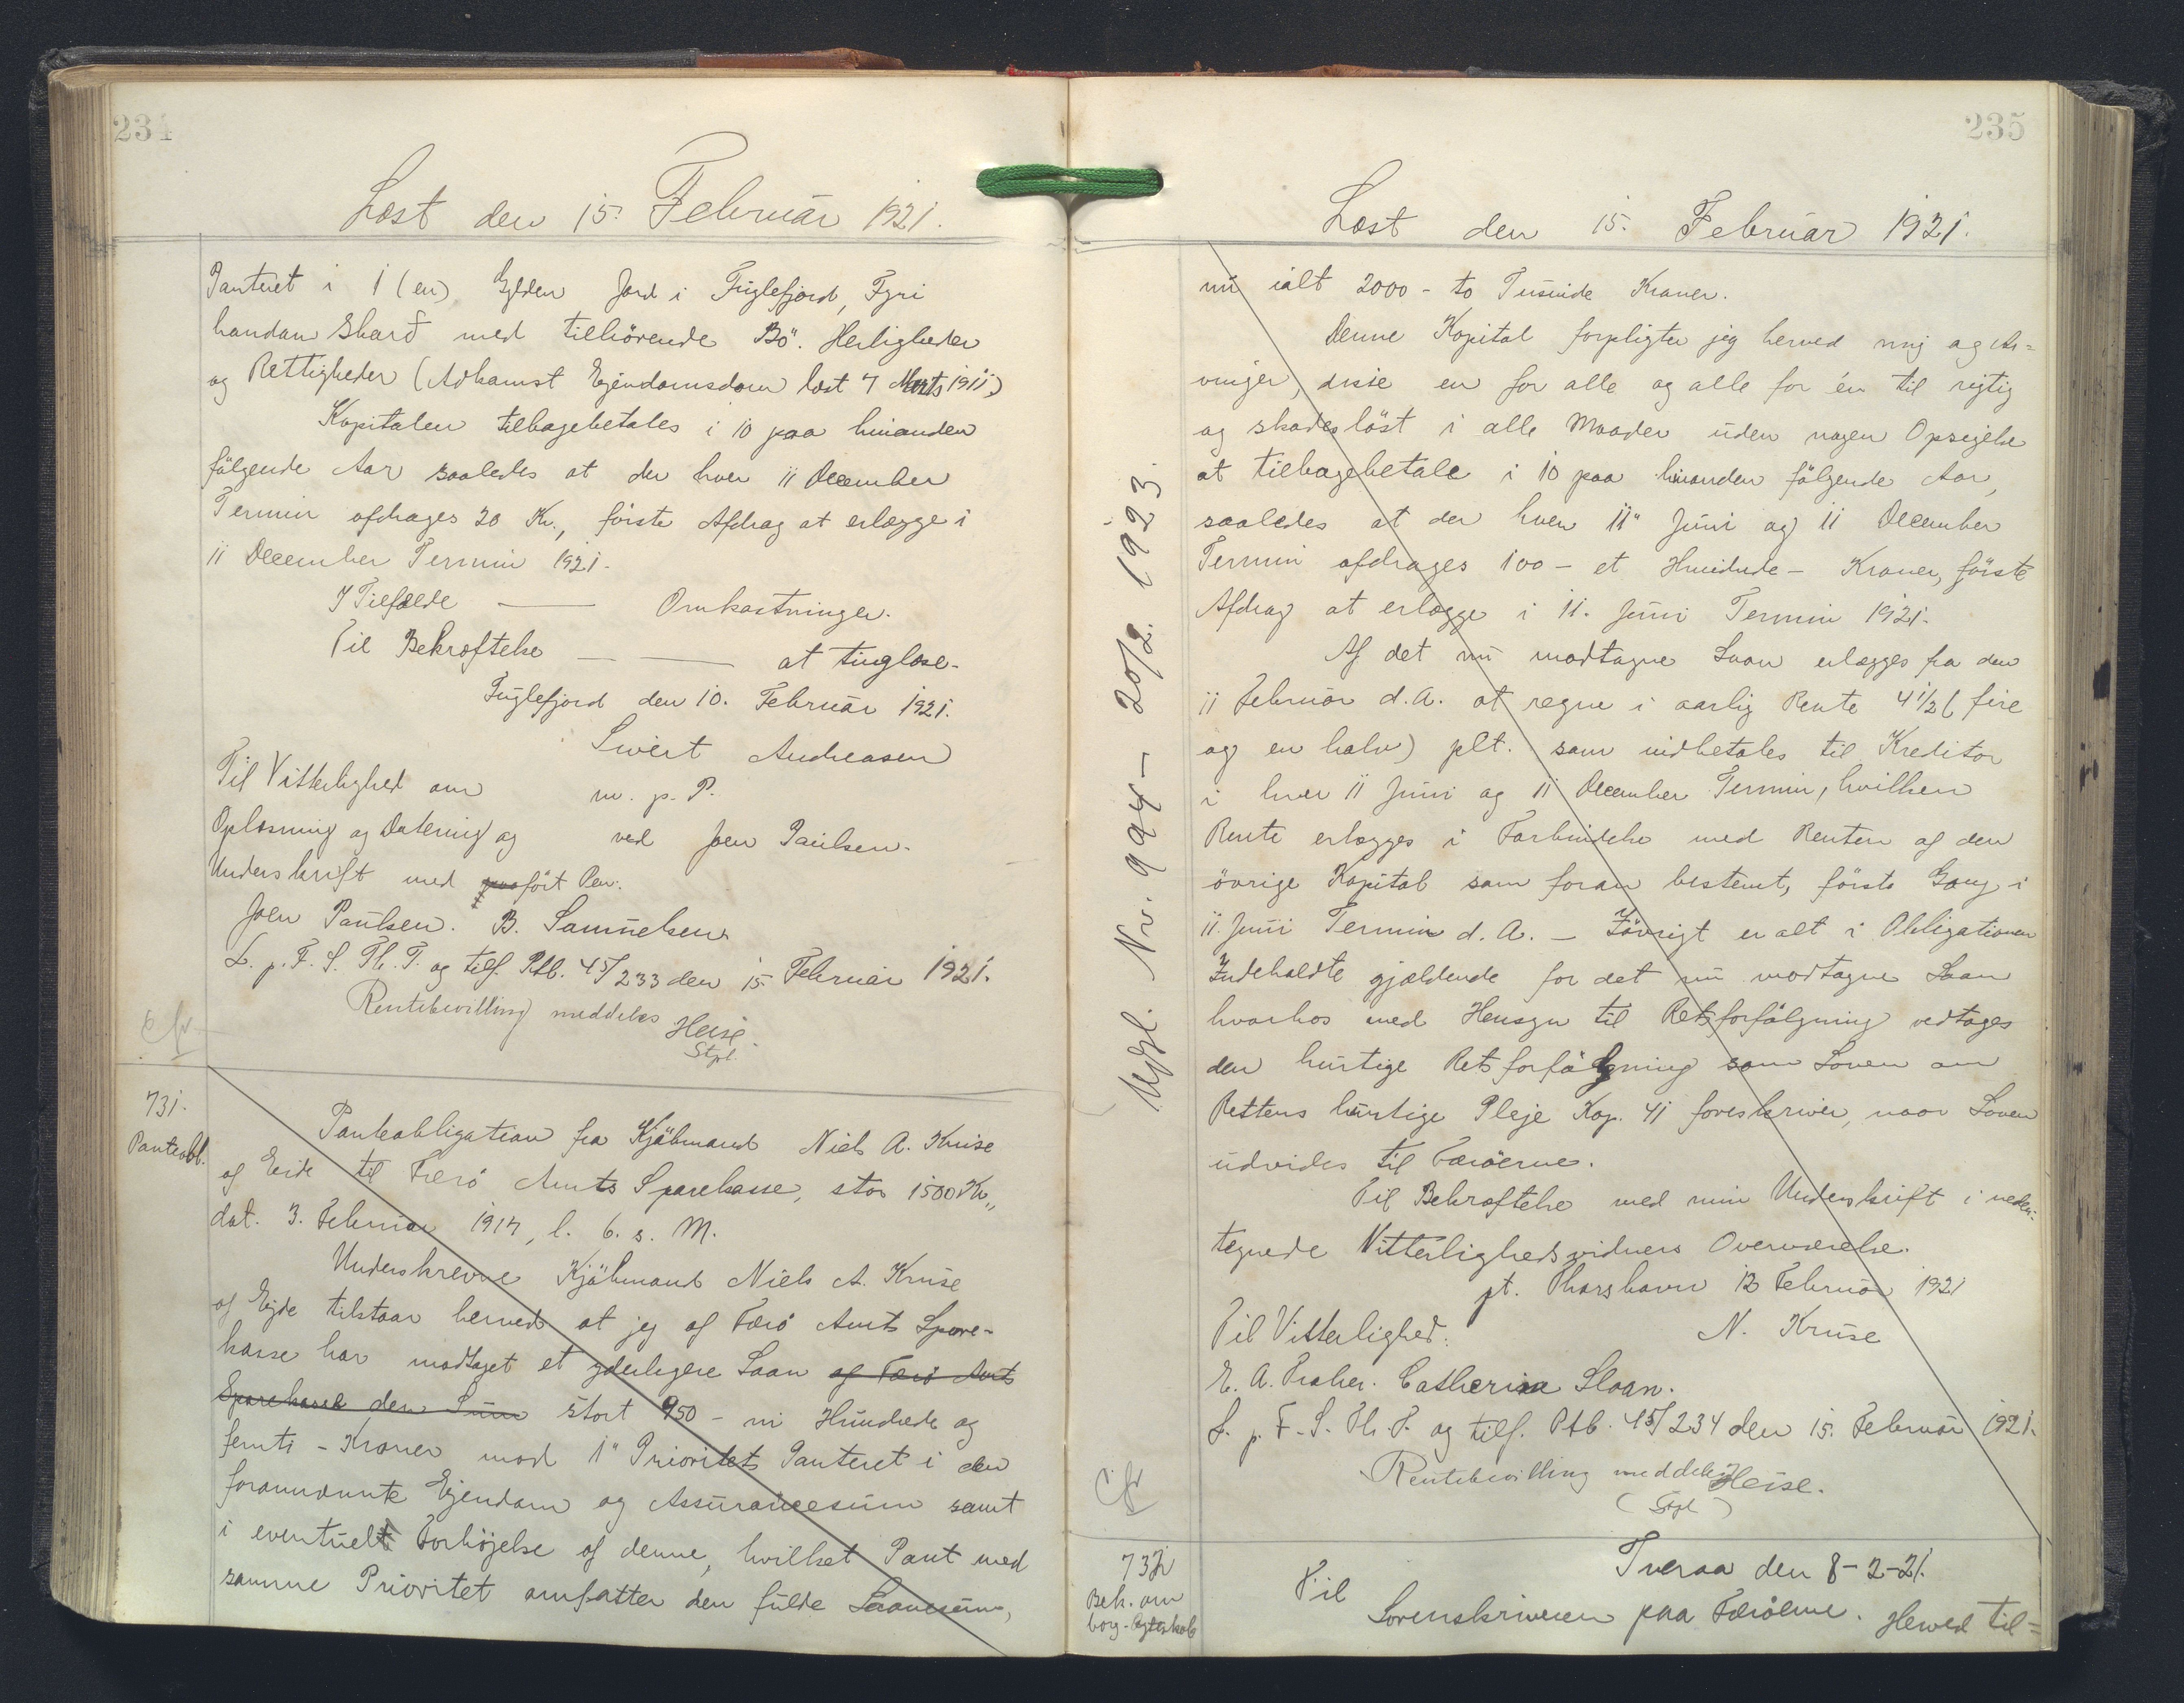 234
Læst den 15. Februar 1921.
Panteret i 1 (en) Gylden Jord i Fuglefjord, Fyri
handan Skarð med tilhörende Bö. Herligheder
og Rettigheder (Adkomst Ejendomsdom læst 7 Marts 1911.)
Kapitalen tilbagebetales i 10 paa hinanden
fölgende Aar saaledes at der hver 11 December
Termin afdrages 20 Kr., förste Afdrag at erlægge i
11 December Termin 1921.
I Tilfælde — Omkostninger.
Til Bekræftelse — — at tinglæse.
Fuglefjord den 10. Februar 1921.
Sivert Andreasen
Til Vitterlighed om m. p. P.
Oplæsning og Datering og ved Joen Paulsen.
Underskrift med fört Pen:
Joen Paulsen. B. Samuelsen
L. p. F. S. Th. T. og tilf. Ptb. 45/233 den 15. Februar 1921.
Rentebevilling meddeles Heise.
Stpl.
731.
Panteobl.
Panteobligation fra Kjöbmand Niels A. Kruse
af Eide til Færö Amts Sparekasse, stor 1500 Kr.,
dat. 3. Februar 1917, l. 6. s. M.
Underskrevne Kjöbmand Niels A. Kruse
af Ejde tilstaar herved at jeg af Færö Amts Spare-
kasse har modtaget et yderligere Laan af Færö Amts
Sparekasse den Sum stort 950 - ni Hundrede og
femti - Kroner mod 1" Prioritets Panteret i den
forannævnte Ejendom og Assurancesum samt
i eventuelt Forhöjelse af denne, hvilket Pant med
samme Prioritet omfatter den fulde Laanesum,
235
Læst den 15. Februar 1921.
nu ialt 2000 - to Tusinde Kroner.
Denne Kapital forpligter jeg herved mig og Ar=
vinger, disse en for alle og alle for én til rigtig
og skadeslöst i alle Maader uden nogen Opsigelse
at tilbagebetale i 10 paa hinanden fölgende Aar,
saaledes at der hver 11" Juni og 11 December
Termin afdrages 100 - et Hundrede - Kroner, förste
Afdrag at erlægge i 11. Juni Termin 1921.
Af det nu modtagne Laan erlægges fra den
11 Februar d.A. at regne i aarlig Rente 4 1/2 (fire
og en halv) pCt. som indbetales til Kreditor
i hver 11 Juni og 11 December Termin, hvilken
Rente erlægges i Forbindelse med Renten af den
övrige Kapital som foran bestemt, förste Gang i
11. Juni Termin d. A. - Iövrigt er alt i Obligationen
Indeholdte gjældende for det nu modtagne Laan
hvorhos med Hensyn til Retsforfölgning vedtages
den hurtige Retsforfölgning som Loven om
Rettens hurtige Pleje Kap. 41 foreskriver, naar Loven
udvides til Færöerne.
Til Bekræftelse med min Underskrift i neden-
tegnede Vitterlighedsvidners Overværelse.
pt. Thorshavn 12 Februar 1921
Til Vitterlighed: N. Kruse
E. A. Catherina Sloan.
L. p. F. S. Th. T. og tilf. Ptb. 45/234 den 15. Februar 1921.
Rentebevilling meddeles Heise.
(Stpl)
Udsl. Nr. 994 - 20/2. 1923.
732
Bek. om
borg. Ægteskab
Tveraa den 8-2-21.
Til
Sorenskriveren paa Færöerne. Herved til=